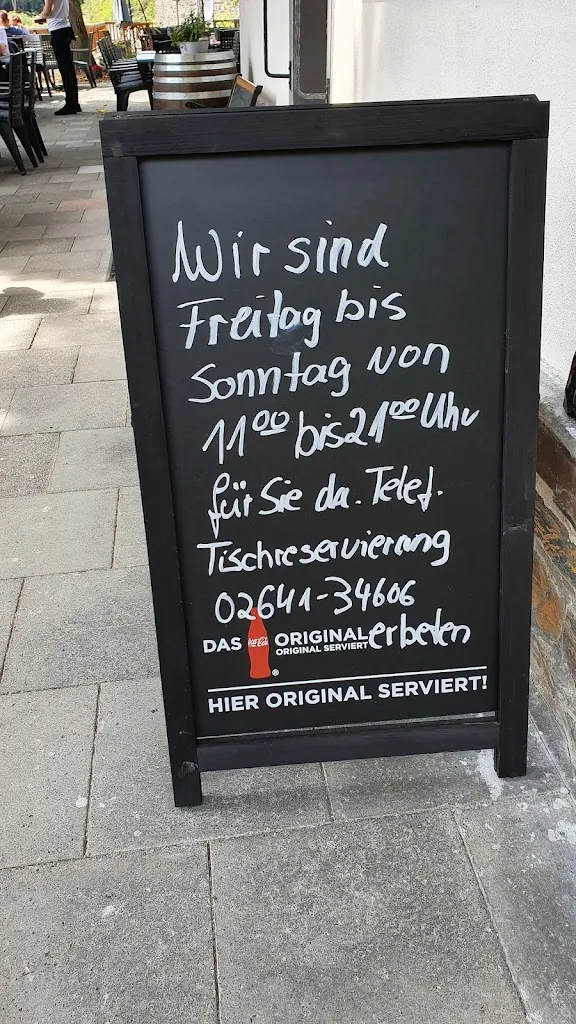 Wir sind
Freitag bis
Sonntag von
11⁰⁰ bis 21⁰⁰ Uhr
für Sie da. Telef.
Tischreservierung
02641-34606
erbeten
DAS Coca-Cola ® ORIGINAL
ORIGINAL SERVIERT
HIER ORIGINAL SERVIERT!